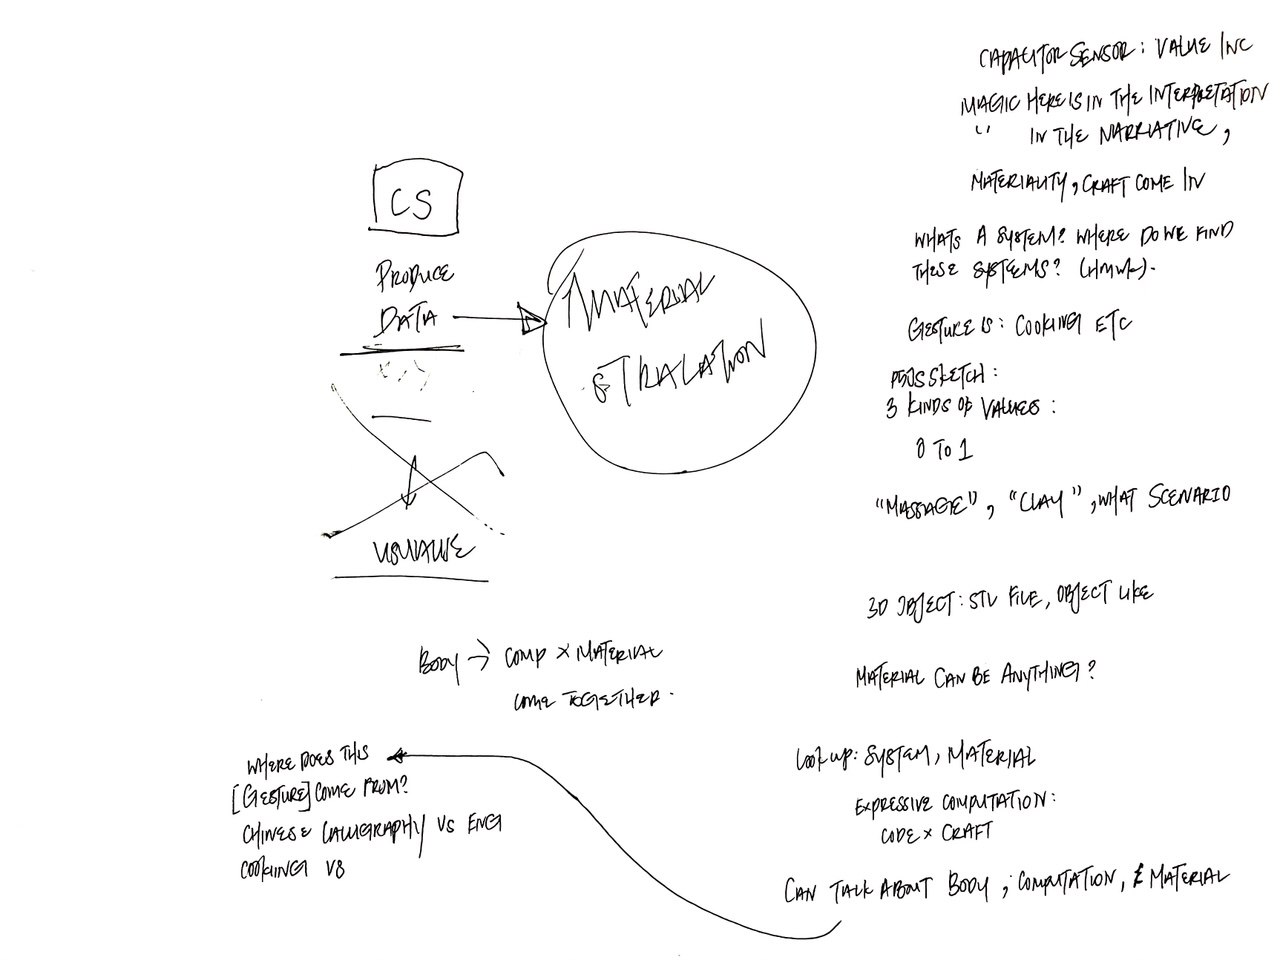 CAPACITOR SENSOR: VALUE INC
MAGIC HERE IS IN THE INTERPRETATION
" IN THE NARRATIVE,
MATERIALITY, CRAFT COME IN
WHATS A SYSTEM? WHERE DO WE FIND
THESE SYSTEMS? (HMWK).
GESTURE IS: COOKING ETC
P5JS SKETCH:
3 KINDS OF VALUES:
0 TO 1
"MASSAGE", "CLAY", WHAT SCENARIO
3D OBJECT: STL FILE, OBJECT LIKE
MATERIAL CAN BE ANYTHING?
LOOK UP: SYSTEM, MATERIAL
EXPRESSIVE COMPUTATION:
CODE × CRAFT
CAN TALK ABOUT BODY, COMPUTATION, & MATERIAL
CS
PRODUCE
DATA
MATERIAL
VISUALISE
BODY → COMP × MATERIAL
COME TOGETHER.
WHERE DOES THIS
[GESTURE] COME FROM?
CHINESE CALLIGRAPHY VS ENG
COOKING VS